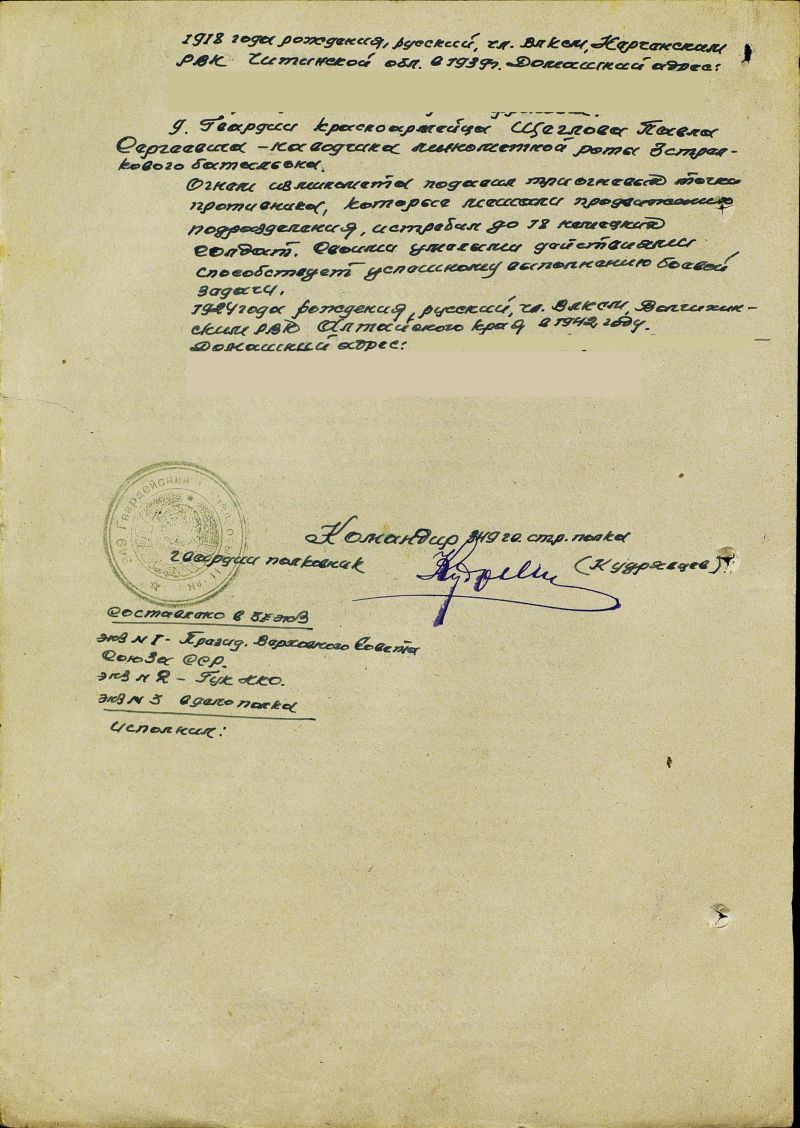 1918 года рождения, русский, чл. ВЛКСМ, Карчанским
РВК Читинской обл. в 1939г. Домашний адрес:
9. Гвардии красноармейца Щеглова Павла
Сергеевича - наводчика минометной роты 3 стрел-
кового батальона.
Огнем из миномета подавил три огневые точки
противника, которые мешали продвижению
подразделения, истребил до 18 немецких
солдат. Своими умелыми действиями
способствует успешному выполнению боевой
задачи.
1924 года рождения, русский, чл. ВЛКСМ, Волчихин-
ским РВК Алтайского края в 1942 году.
Домашний адрес:
349 Гвардейский
Командир 349 гв. стр. полка
гвардии полковник (Кудрявцев)
Составлено в 3х экз
экз № 1 - Презид. Верховного Совета
Союза ССР.
экз № 2 - Гук НКО.
экз № 3 в дело полка
Исполнил: